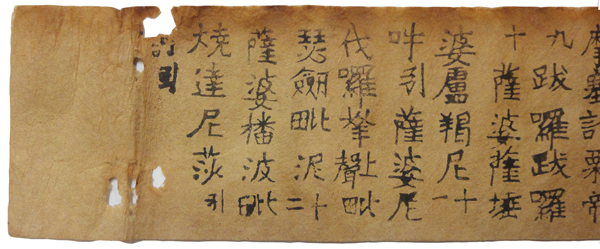 栗帝
九跋羅跋羅
十薩婆薩埵
婆盧羯尼十一
吽引薩婆尼
伐羅拏上聲毗
瑟劒毗泥十二
薩婆播波毗
燒達尼莎引
訶引